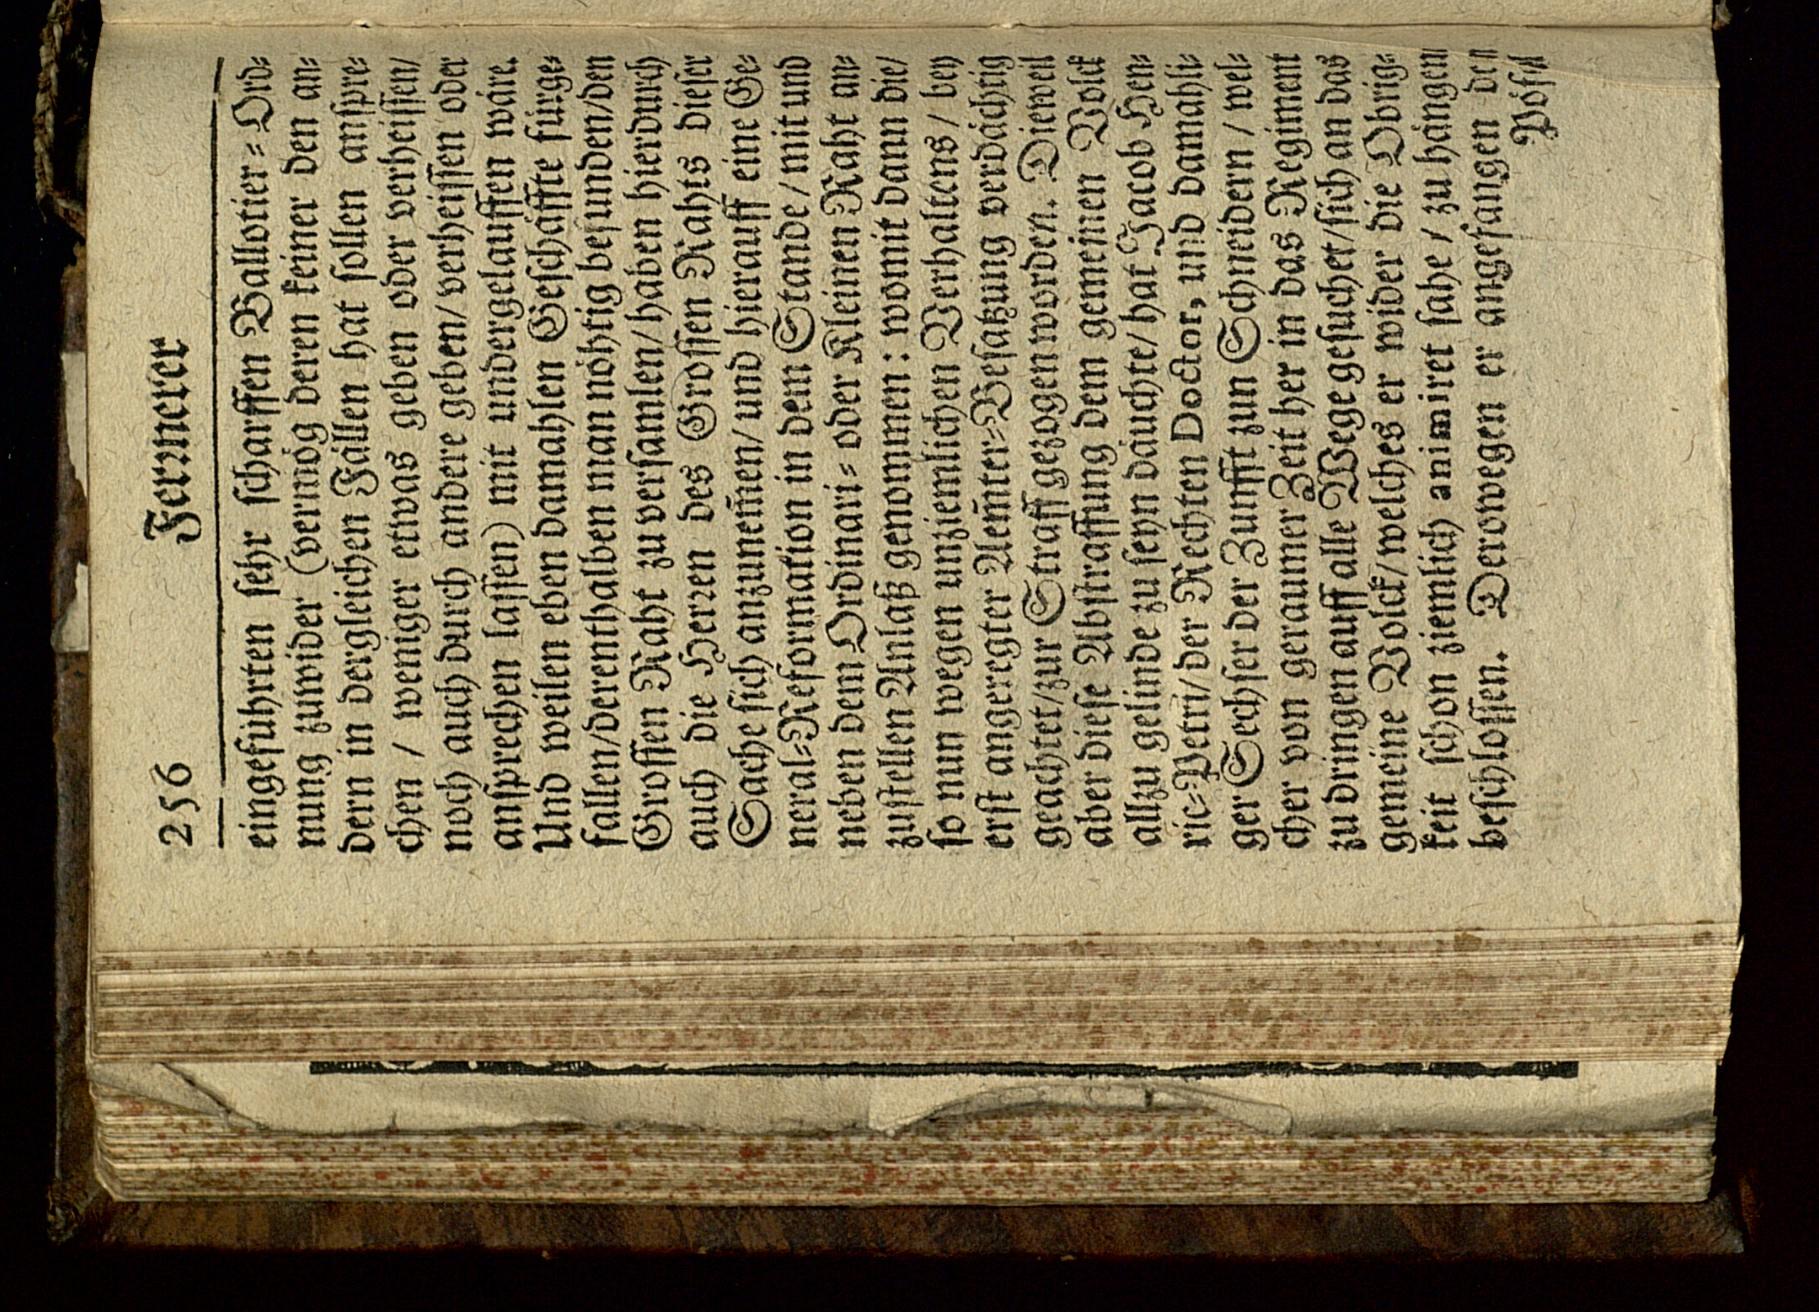 256 Fernerer
eingeführten sehr scharffen Ballotier-Ord-
nung zuwider (vermög deren keiner den an-
dern in dergleichen Fällen hat sollen anspre-
chen / weniger etwas geben oder verheissen/
noch auch durch andere geben/ verheissen oder
ansprechen lassen) mit undergelauffen wäre.
Und weilen eben damahlen Geschäffte fürge-
fallen/derenthalben man nöhtig befunden/den
Grossen Raht zu versamlen/ haben hierdurch
auch die Herren des Grossen Rahts dieser
Sache sich anzunem̃en/ und hierauff eine Ge-
neral-Reformation in dem Stande / mit und
neben dem Ordinari- oder Kleinen Raht an-
zustellen Anlaß genommen: womit dann die/
so nun wegen unziemlichen Verhaltens / bey
erst angeregter Aem̃ter-Besatzung verdächtig
geachtet/zur Straff gezogen worden. Dieweil
aber diese Abstraffung dem gemeinen Volck
allzu gelinde zu seyn dauchte/ hat Jacob Hen-
ric-Petri/ der Rechten Doctor, und damahli-
ger Sechser der Zunfft zun Schneidern / wel-
cher von geraumer Zeit her in das Regiment
zu dringen auff alle Wege gesuchet/sich an das
gemeine Volck/welches er wider die Obrig-
keit schon ziemlich animiret sahe / zu hängen
beschlossen. Derowegen er angefangen den
Pöfel